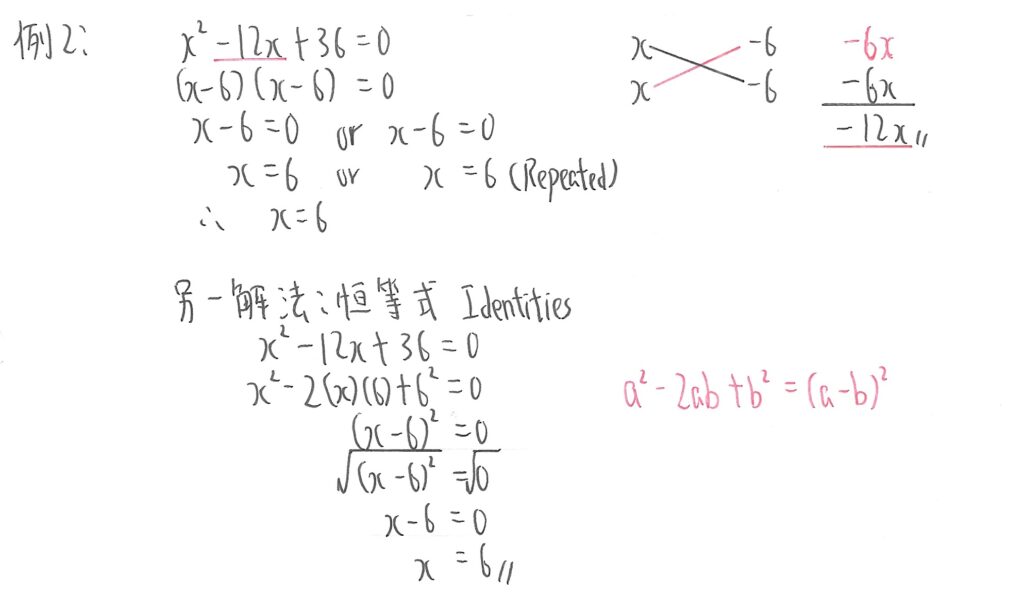 例2:
x² -12x + 36 = 0
(x-6)(x-6) = 0
x-6 = 0 or x-6 = 0
x = 6 or x = 6 (Repeated)
∴ x = 6
x -6 -6x
x -6 -6x
-12x //
另一解法:恒等式 Identities
x² - 12x + 36 = 0
x² - 2(x)(6) + 6² = 0
a² - 2ab + b² = (a-b)²
(x-6)² = 0
√(x-6)² = √0
x-6 = 0
x = 6 //